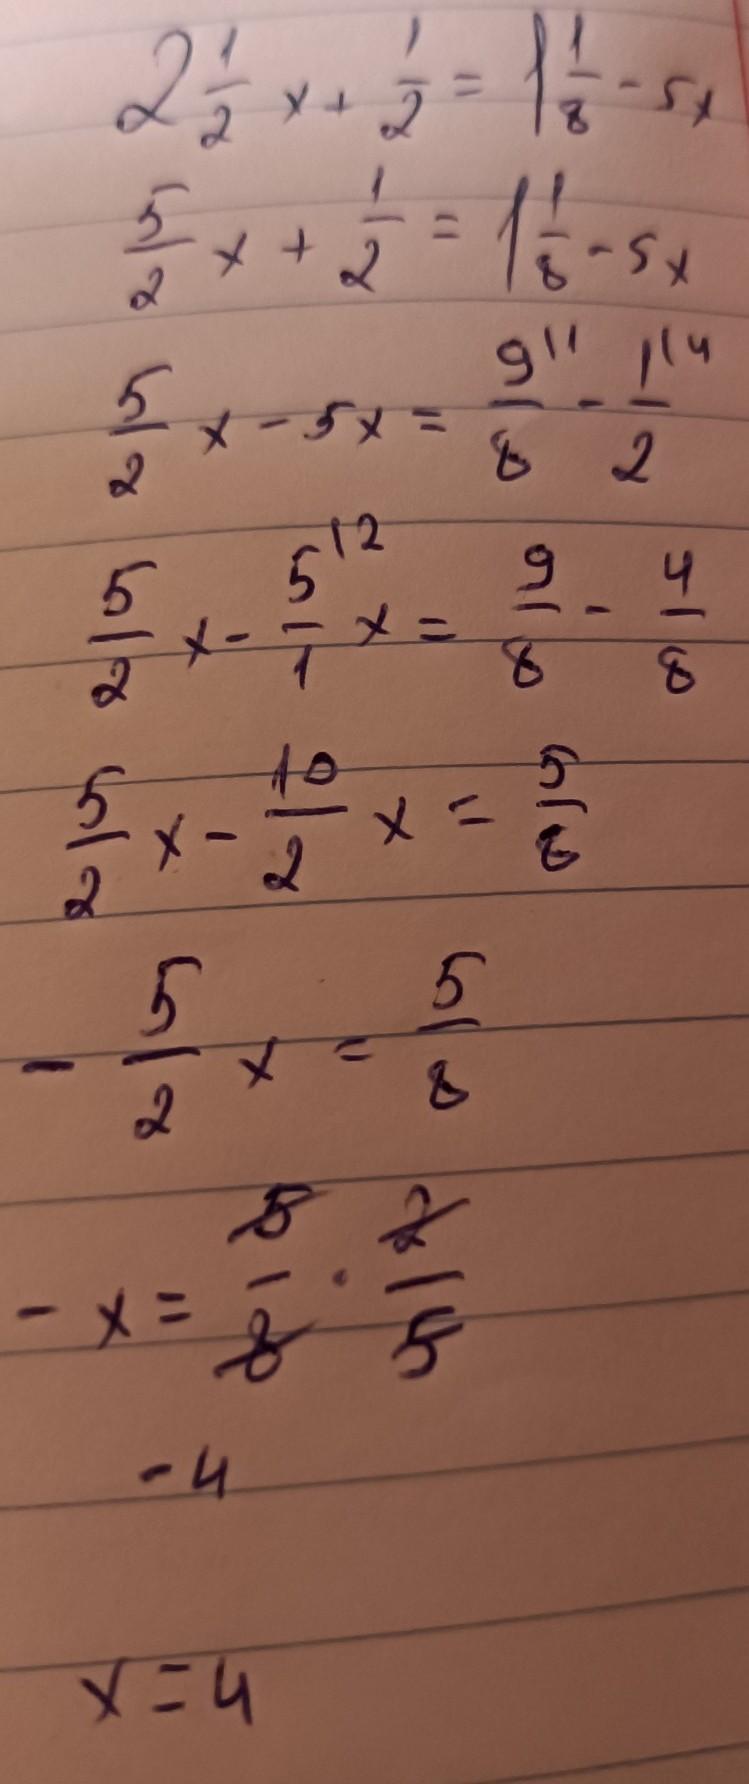 2 1/2 x + 1/2 = 1 1/8 - 5x
5/2 x + 1/2 = 1 1/8 - 5x
5/2 x - 5x = 9/8 |1 - 1/2 |4
5/2 x - 5/1 |2 x = 9/8 - 4/8
5/2 x - 10/2 x = 5/8
- 5/2 x = 5/8
- x = 5/8 · 2/5
- 4
x = 4